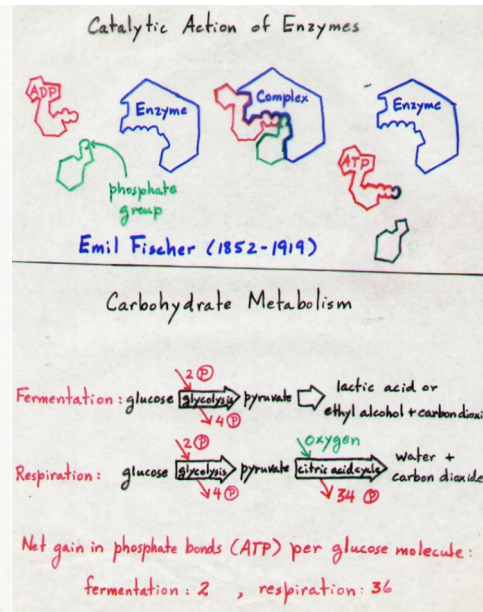 Catalytic Action of Enzymes
ADP
Enzyme
Complex
Enzyme
ATP
phosphate
group
Emil Fischer (1852-1919)
Carbohydrate Metabolism
2 P
Fermentation: glucose glycolysis pyruvate lactic acid or
ethyl alcohol + carbon dioxi
4 P
2 P
oxygen
Respiration: glucose glycolysis pyruvate citric acid cycle water +
carbon dioxide
4 P
34 P
Net gain in phosphate bonds (ATP) per glucose molecule:
fermentation: 2 , respiration: 36